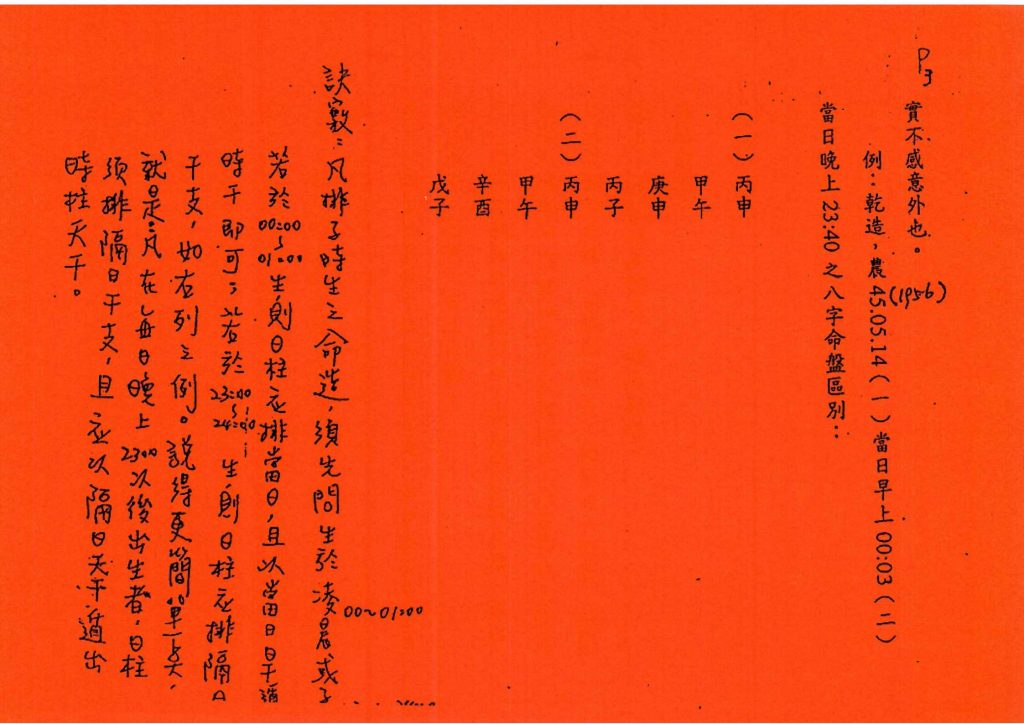 P3
實不感意外也。
例：乾造，農45.05.14（一）當日早上00:03（二）
(1956)
當日晚上23:40之八字命盤區別：
（一）丙申
甲午
庚申
丙子
（二）丙申
甲午
辛酉
戊子
訣竅：凡排子時生之命造，須先問生於凌晨或子
00~01:00
若於00:00~01:00生則日柱應排當日，且以當日日干遁
時干即可；若於23:00~24:00生則日柱應排隔日
干支，如右列之例。說得更簡單點，
就是：凡在每日晚上23:00以後出生者，日柱
須排隔日干支，且應以隔日天干遁出
時柱天干。